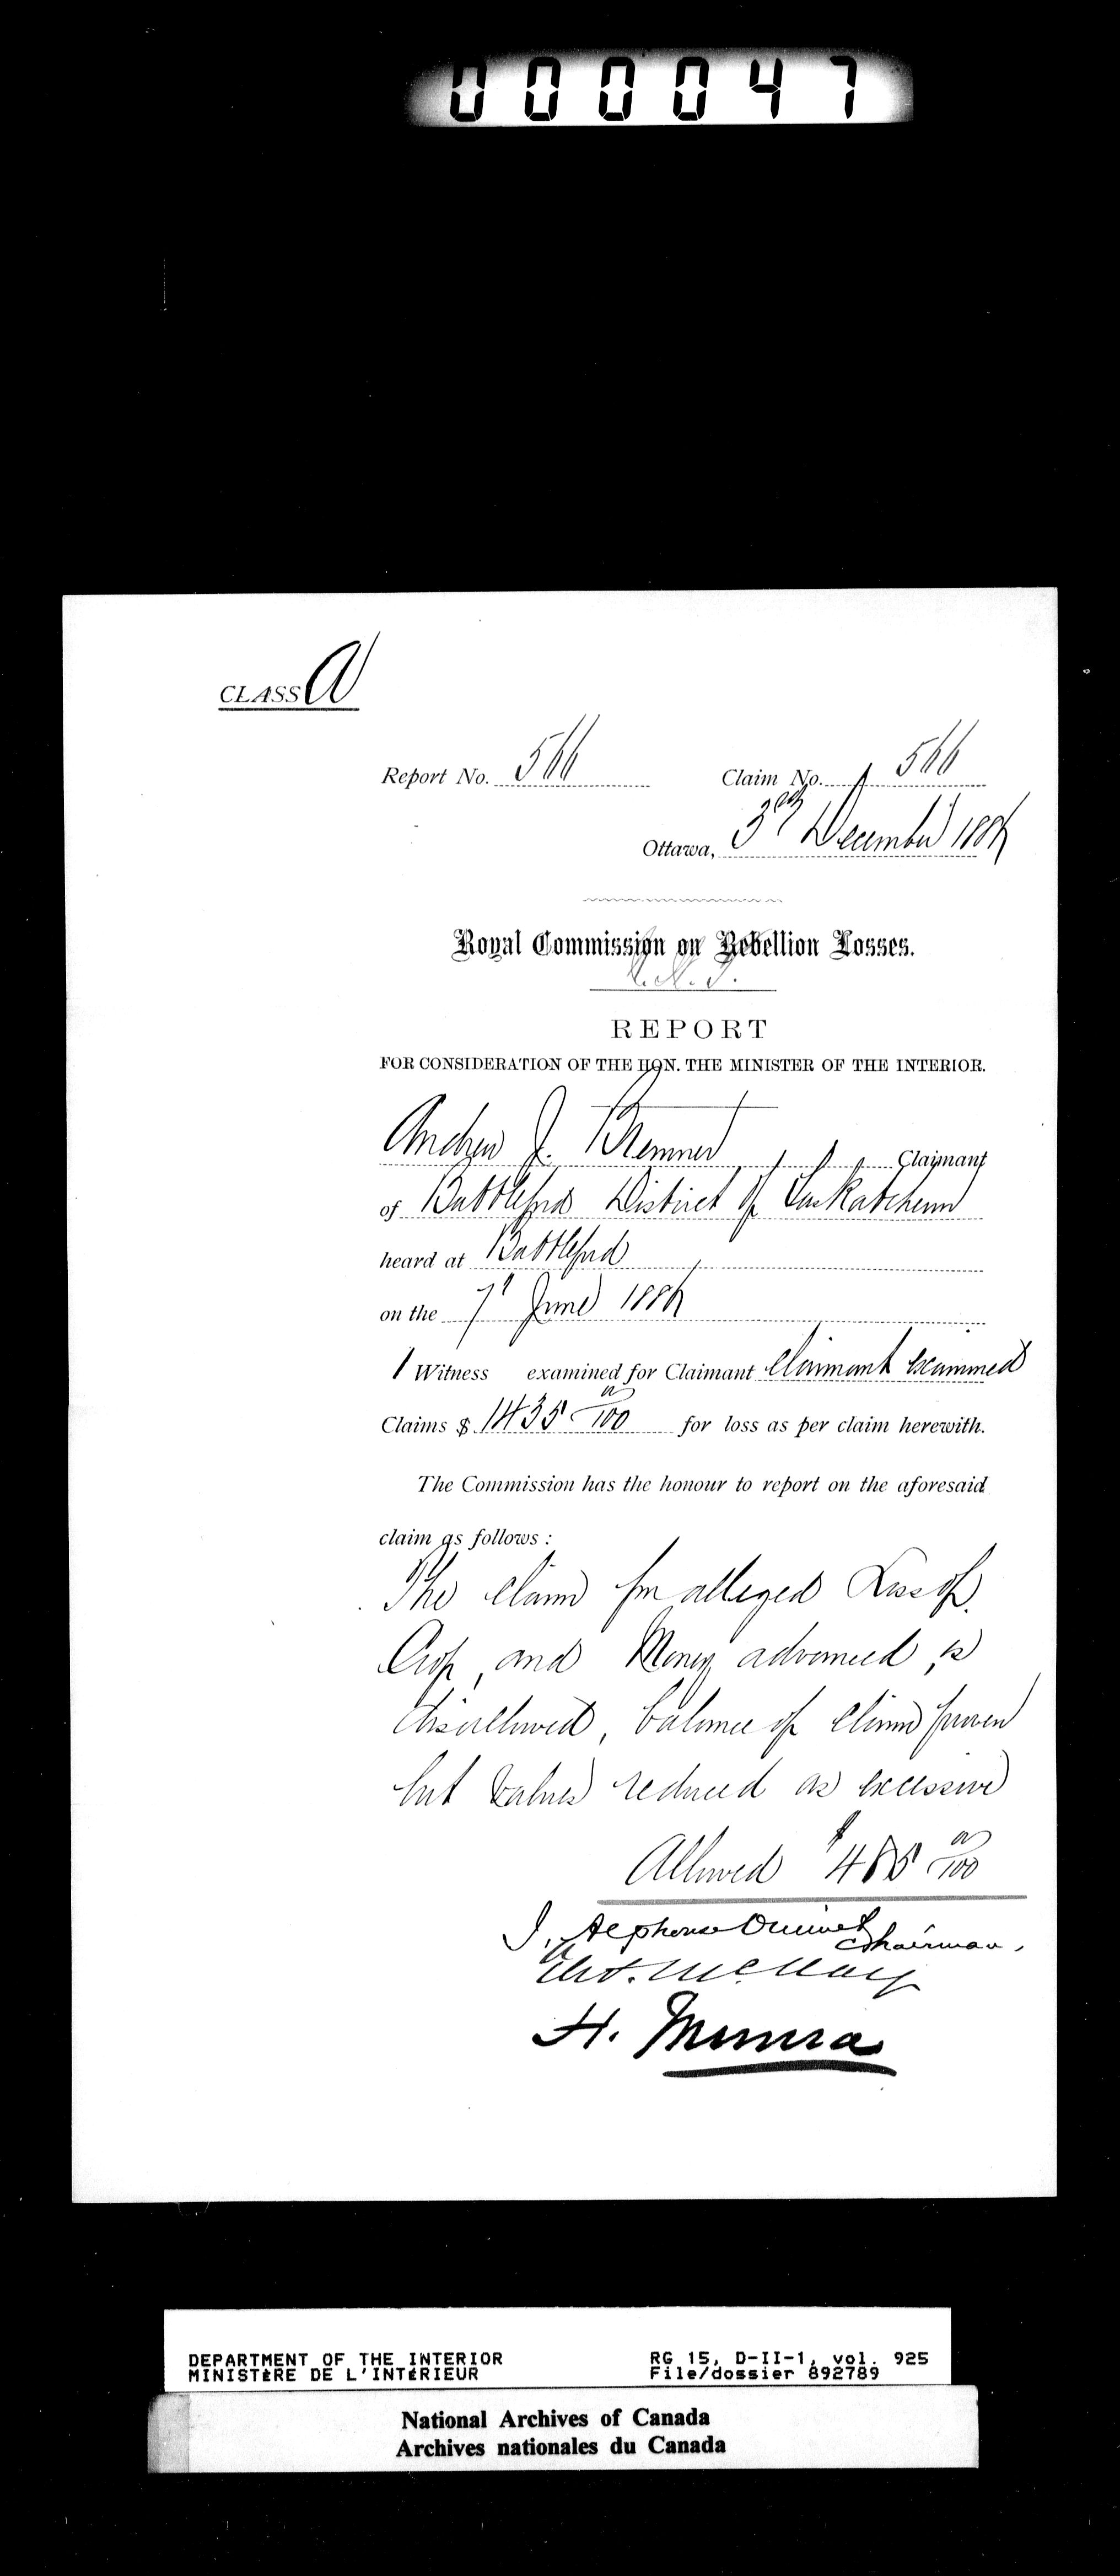 000047
CLASS A
Report No. 566 Claim No. 566
Ottawa, 3rd December 1886
Royal Commission on Rebellion Losses.
REPORT
FOR CONSIDERATION OF THE HON. THE MINISTER OF THE INTERIOR.
Andrew J. Bremner Claimant
of Battleford District of Saskatchewan
heard at Battleford
on the 7" June 1886
1 Witness examined for Claimant Claimant examined
Claims $ 1435 00/100 for loss as per claim herewith.
The Commission has the honour to report on the aforesaid
claim as follows:
The claim for alleged Loss of
Crop, and Money advanced, is
disallowed, balance of claim proven
but values reduced as excessive
Allowed $485 00/100
J. Alphonse Ouimet
Chairman,
H. Muma
DEPARTMENT OF THE INTERIOR RG 15, D-II-1, vol. 925
MINISTÈRE DE L'INTÉRIEUR File/dossier 892789
National Archives of Canada
Archives nationales du Canada